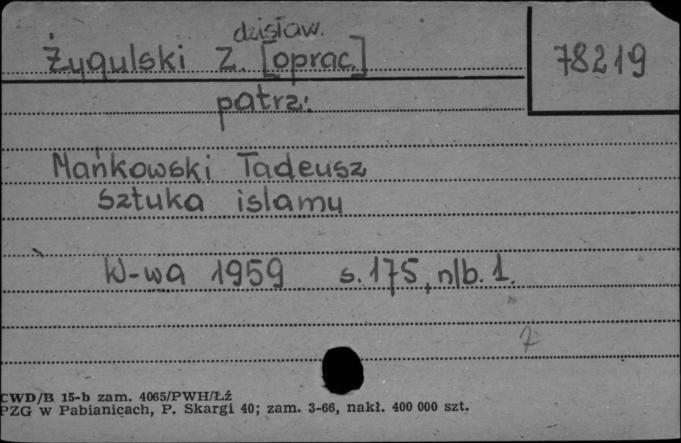 dzisław.
Żygulski Z. [oprac.] 78219
patrz:
Mańkowski Tadeusz
Sztuka islamu
W-wa 1959 s. 175, nlb. 1.
7
CWD/B 15-b zam. 4065/PWH/Łź
PZG w Pabianicach, P. Skargi 40; zam. 3-66, nakł. 400 000 szt.